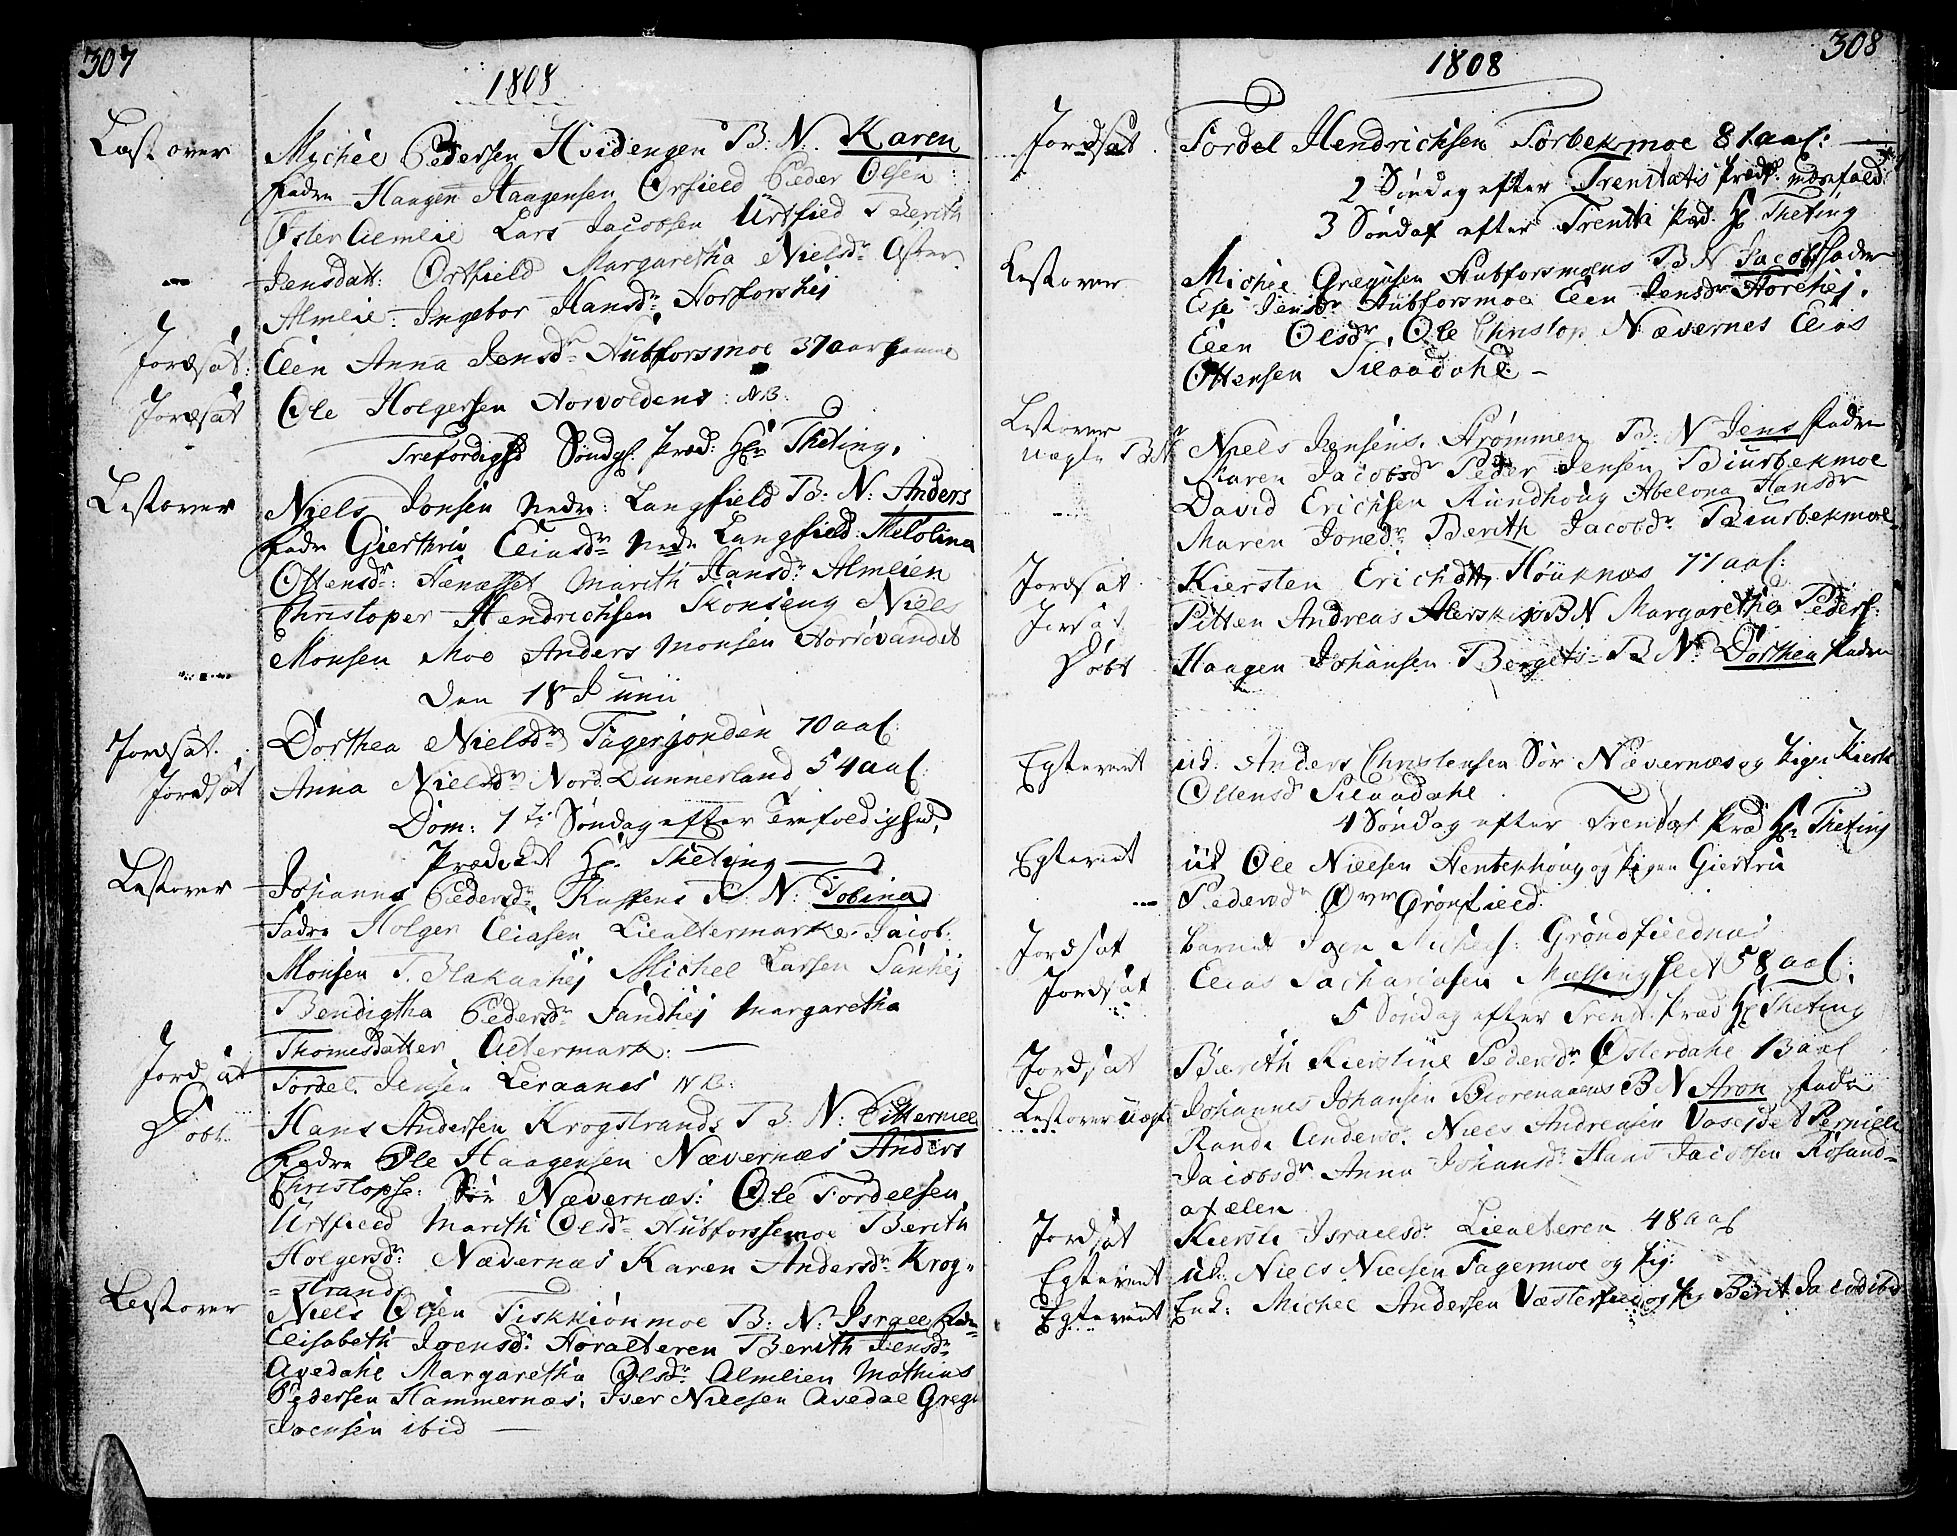 307
1808
Læst over Michel Pedersen Hvidengen B: N: Karen
Fadre Haagen Haagensen Ørfield Peder Olsen
Øster Almlie Lars Jacobsen Urtfied Berith
Jensdatt: Ortfield Margaretha Nielsdr Øster
Almlie: Ingebor Hansdr Horforshej
Jordsat: Elen Anna Jensdr Hubforsmoe 37 aar gaml
Jordsat Ole Holgersen Aorvoldens NB:
Trefoldighd Søndg: Præd: Hr Theting,
Læst over Niels Jonsen Nedr: Langfield B: N: Anders
Fadr Gierthru Eliasdr Nedr Langfield: Melolina
Ottensdr: Hænæsset Marith Hansdr: Almlien
Christoper Hendrichsen Skonseng Niels
Monsen Moe Anders Monsen Hornvandet
Den 18 Junii
Jordsat. Dorthea Nielsdr Fagerjorden 70 aal:
Jordsat Anna Nielsdr Nord Dunnerland 54 aal:
Dom: 1te Søndag efter Trefoldighed,
Prædiket Hr. Theting
Læst over Johannes Pedersdr N: Tobina
Fadre Holger Eliasen Liealtermarke Jacob
Monsen Blakaahej Michel Larsen Sanhej
Bendigtha Pedersdr Sandhej Margaretha
Thomesdatter Altermark:
Jordsat Tordel Jensen Leraanes NB:
Døbt Hans Andersen Krogstrands B: N: Pitternel
Fadre Ole Haagensen Nævernæs Anders
Christophs: Sør Nævernæs: Ole Tordelsen
Urtfield Marith Olsdr Hubforssmoe Berith
Holgersdr: Nævernæs Karen Andersdr Krog-
-strand
Læst over Niels Olsen Fiskkiønmoe B: N: Israel Fadr
Elisabeth Joensdr: Horalteren Berith Jensdr
Avedahl Margaretha Olsdr: Almlien Mathias
Pedersen Hammernæs: Iver Nielsen Avedal Greg
Joensen ibid
308
1808
Jordsat Tordel Hendrichsen Tørbekmoe 81 aal:
2 Søndag efter Trenitatis præd:
3 Søndag efter Trenita præd. Hr Theting
Læst over Michel Gregusen Hubforsmoens B N Jacob Fadre
Else Jensdr Hubforsmoe Elen Jensdr
Elen Olsdr, Ole Christop Nævernes Elias
Ottensen Silaadahl
Læst over Niels Jensens. Strømmen B: N Jens Fadre
Maren Jacobsdr Peder Jensen Biurbekmoe
David Erichsen Rundhoug Abelona Hansdr
Maren Jonsdr Berith Jacobdr Biurbekmoe
Jordsat Kiersten Erichdttr Høuknæs 77 aal:
Jordsat Pitten Andreas BN Margaretha Pedersd:
Døbt Haagen Johansen Bergets B N Dorthea Fadre
Egteviet ud: Anders Christensen Sør Nævernæs og Pigen Kiersti
Ottensdr Silaadahl.
4 Søndag efter Trenitat Præd Hr Theting
Egteviet ud Ole Nielsen Henbekhoug og Pigen Giertru
Pedersdr Øvr Grønfield
Jordsat barnet Grøndfieldnæs
Jordsat Elias Sachariasen Messingslet 58 aal:
5 Søndag efter Trenit. præd Hr Theting
Jordsat Berith Kierstine Pedersdr Østerdahl 13 aal
Læst over Uægte Johannes Johansen B N Aron Fadre
Randi Andersd. Niels Andreasen Pernille
Jacobsdr Anna Johansdr: Hans Jacobsen Røsand-
axelen
Jordsat Kiersti Israelsdr. Liealteren 48 aal
Egteviet uk: Niels Nielsen Fagermoe og Pig:
Egteviet Enk: Michel Andersen Væsterfield og P: Berit Jacobsd ibd